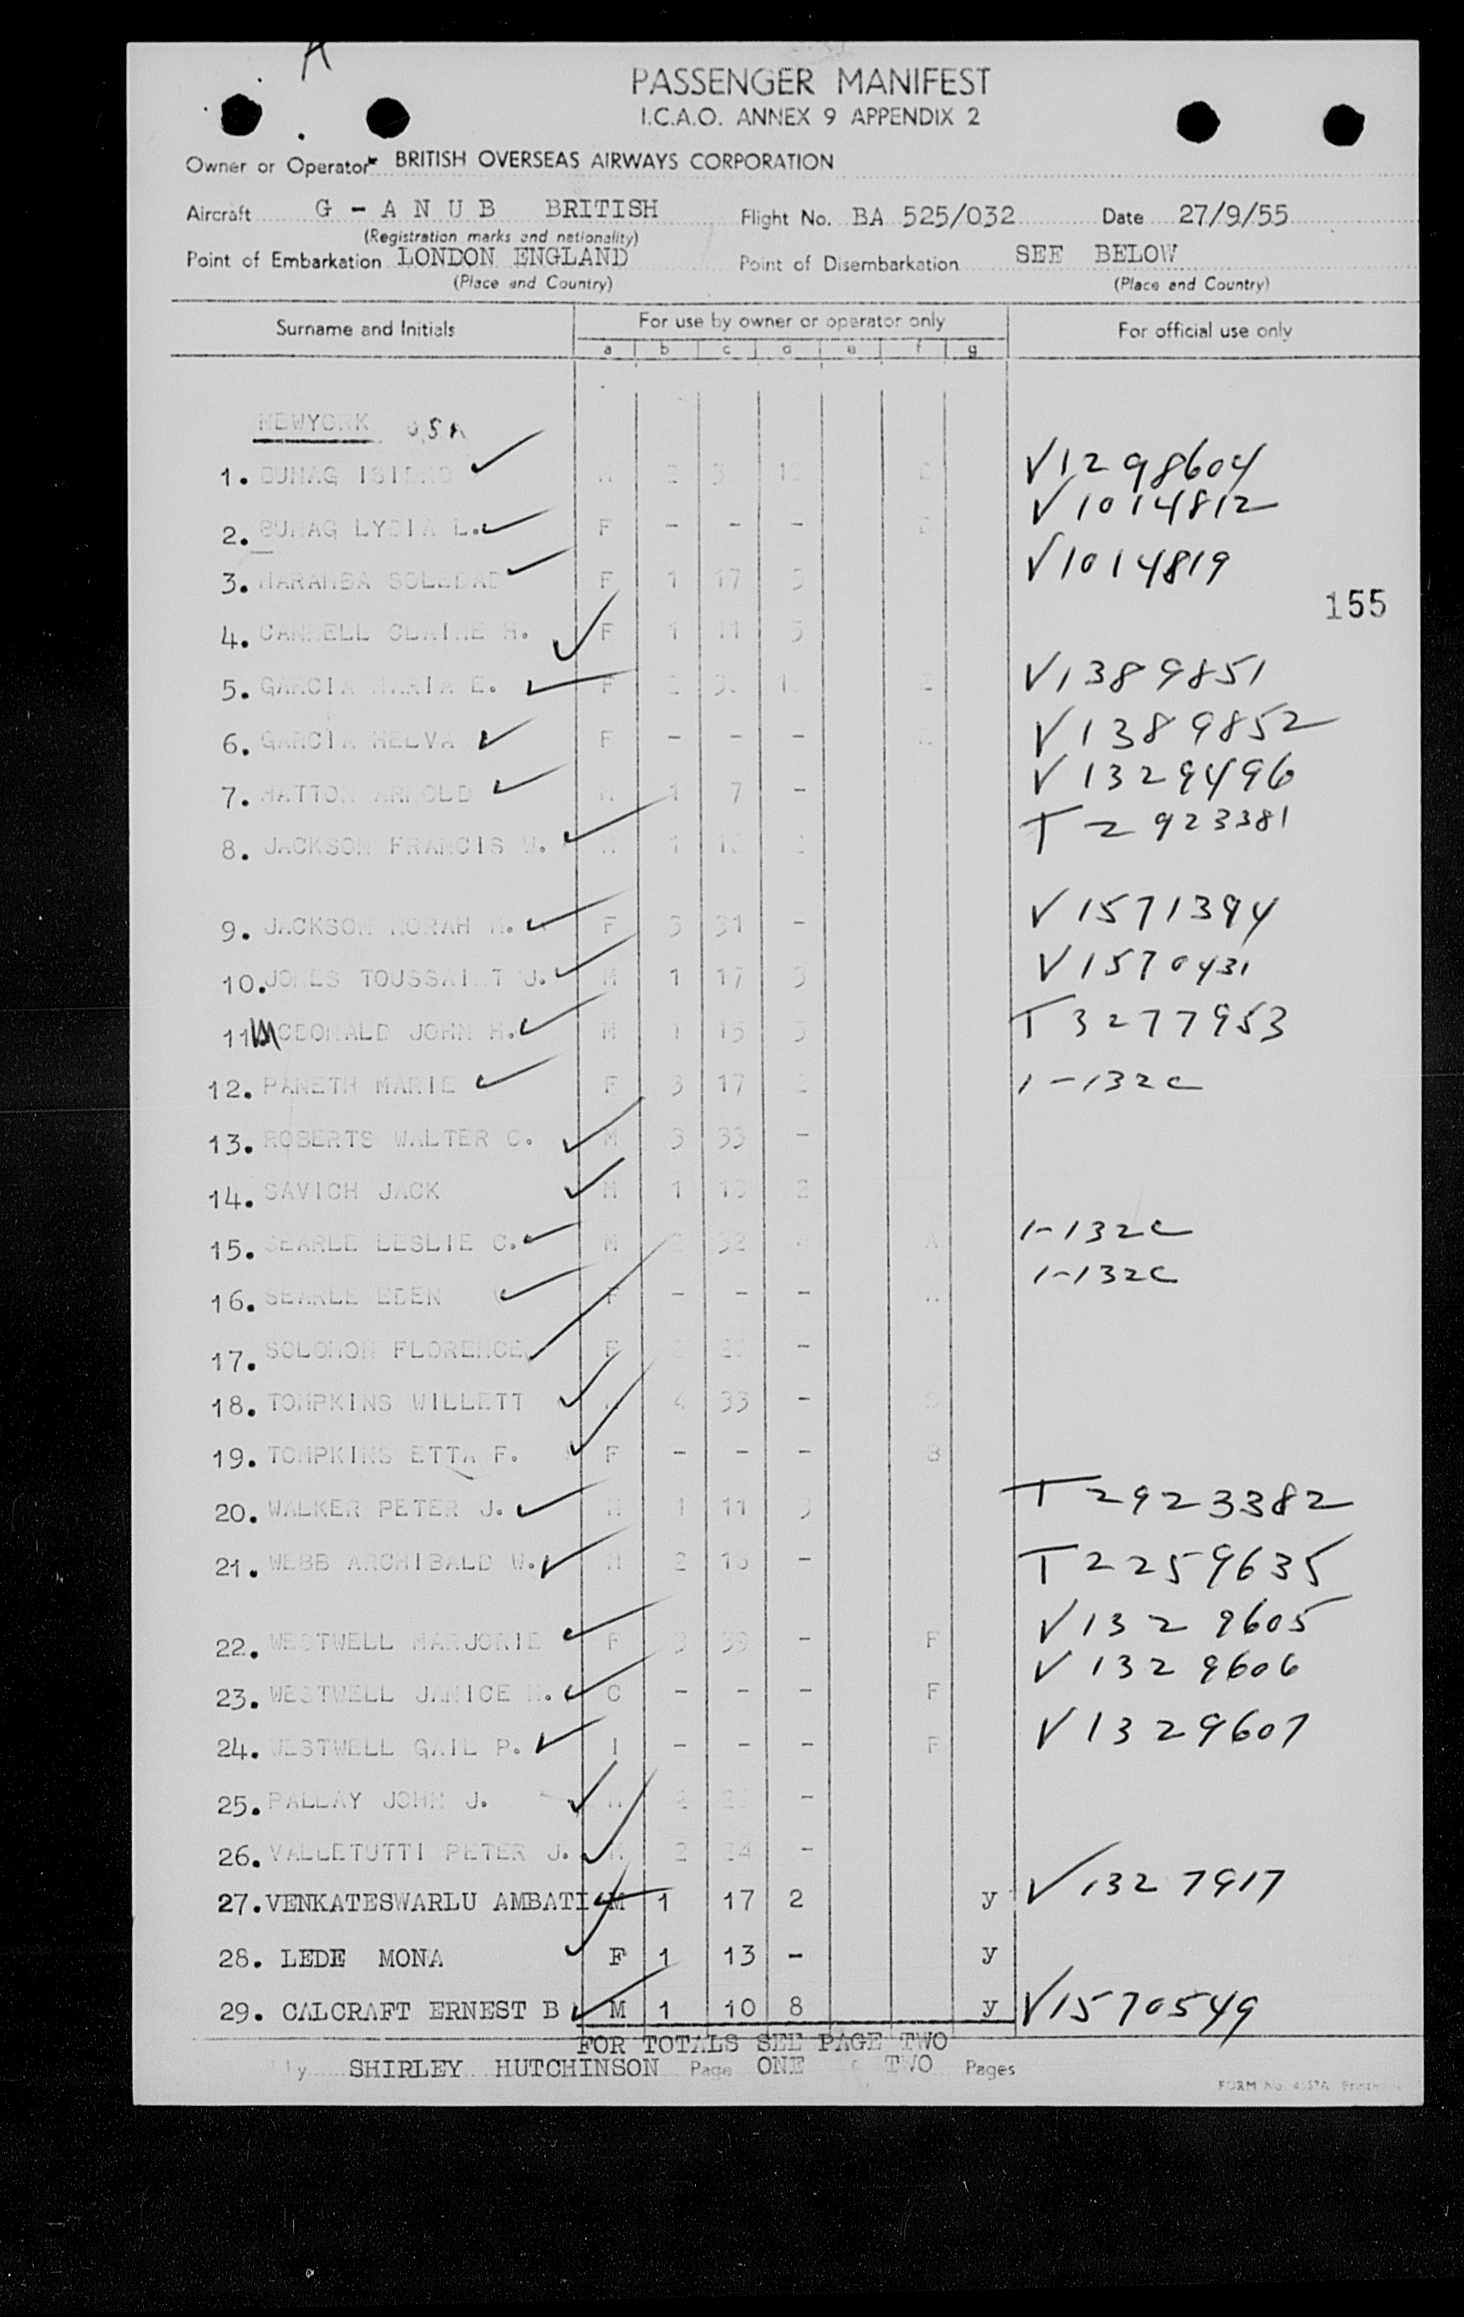 PASSENGER MANIFEST
I.C.A.O. ANNEX 9 APPENDIX 2
Owner or Operator* BRITISH OVERSEAS AIRWAYS CORPORATION
Aircraft G - A N U B BRITISH Flight No. BA 525/032 Date 27/9/55
(Registration marks and nationality)
Point of Embarkation LONDON ENGLAND Point of Disembarkation SEE BELOW
(Place and Country) (Place and Country)
Surname and Initials For use by owner or operator only For official use only
a b c d e f g
NEWYORK USA
1. BUNAG V1298604
2. BUNAG LYDIA L. F - - - V1014812
3. MARAMBA SOLEDAD F 1 17 3 V1014819
155
4. CLAIRE H. F 1 11 3
5. GARCIA MARIA E. F V1389851
6. GARCIA MELVA F - - - V1389852
7. ARNOLD 1 7 - V1329496
8. JACKSON FRANCIS W. 1 T2923381
9. JACKSON NORAH F 3 31 - V1571394
10. JONES TOUSSAINT J. M 1 17 3 V1570431
11. MCDONALD JOHN H. M 1 15 3 T3277953
12. PANETH MARIE F 3 17 1-132C
13. ROBERTS WALTER C. M 3 33 -
14. SAVICH JACK M 1 2
15. SEARLE LESLIE C. M 32 A 1-132C
16. SEARLE EDEN F - - - 1-132C
17. SOLOMON FLORENCE F -
18. TOMPKINS WILLETT 4 33 -
19. TOMPKINS ETTA F. F - - - B
20. WALKER PETER J. M 1 11 3 T2923382
21. WEBB ARCHIBALD W. M 2 - T2259635
22. WESTWELL MARJORIE F 3 39 - F V1329605
23. WESTWELL JANICE M. C - - - F V1329606
24. WESTWELL GAIL P. I - - - F V1329607
25. PALLAY JOHN J. 2 -
26. VALLETUTTI PETER J. M 2 24 -
27. VENKATESWARLU AMBATI M 1 17 2 y V1327917
28. LEDE MONA F 1 13 - y
29. CALCRAFT ERNEST B M 1 10 8 y V1570549
FOR TOTALS SEE PAGE TWO
by SHIRLEY HUTCHINSON Page ONE TWO Pages
FORM No.